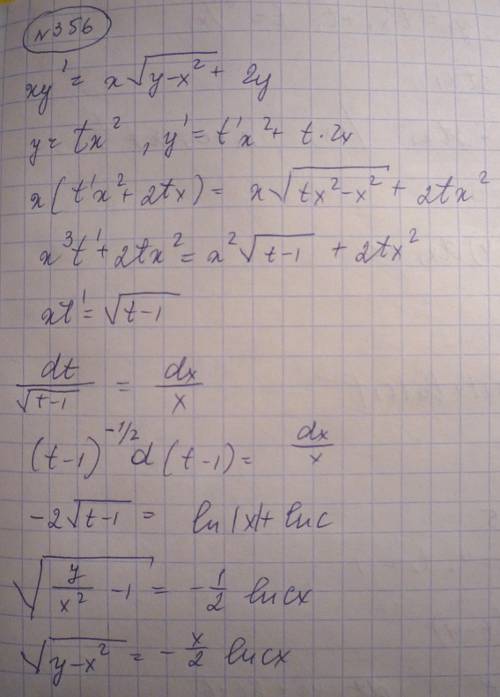 №356
xy' = x√(y-x²) + 2y
y = tx², y' = t'x² + t·2x
x(t'x² + 2tx) = x√(tx²-x²) + 2tx²
x³t' + 2tx² = x²√(t-1) + 2tx²
xt' = √(t-1)
dt/√(t-1) = dx/x
(t-1)^(-1/2) d(t-1) = dx/x
-2√(t-1) = ln|x| + lnc
√(y/x² - 1) = -1/2 lncx
√(y-x²) = -x/2 lncx